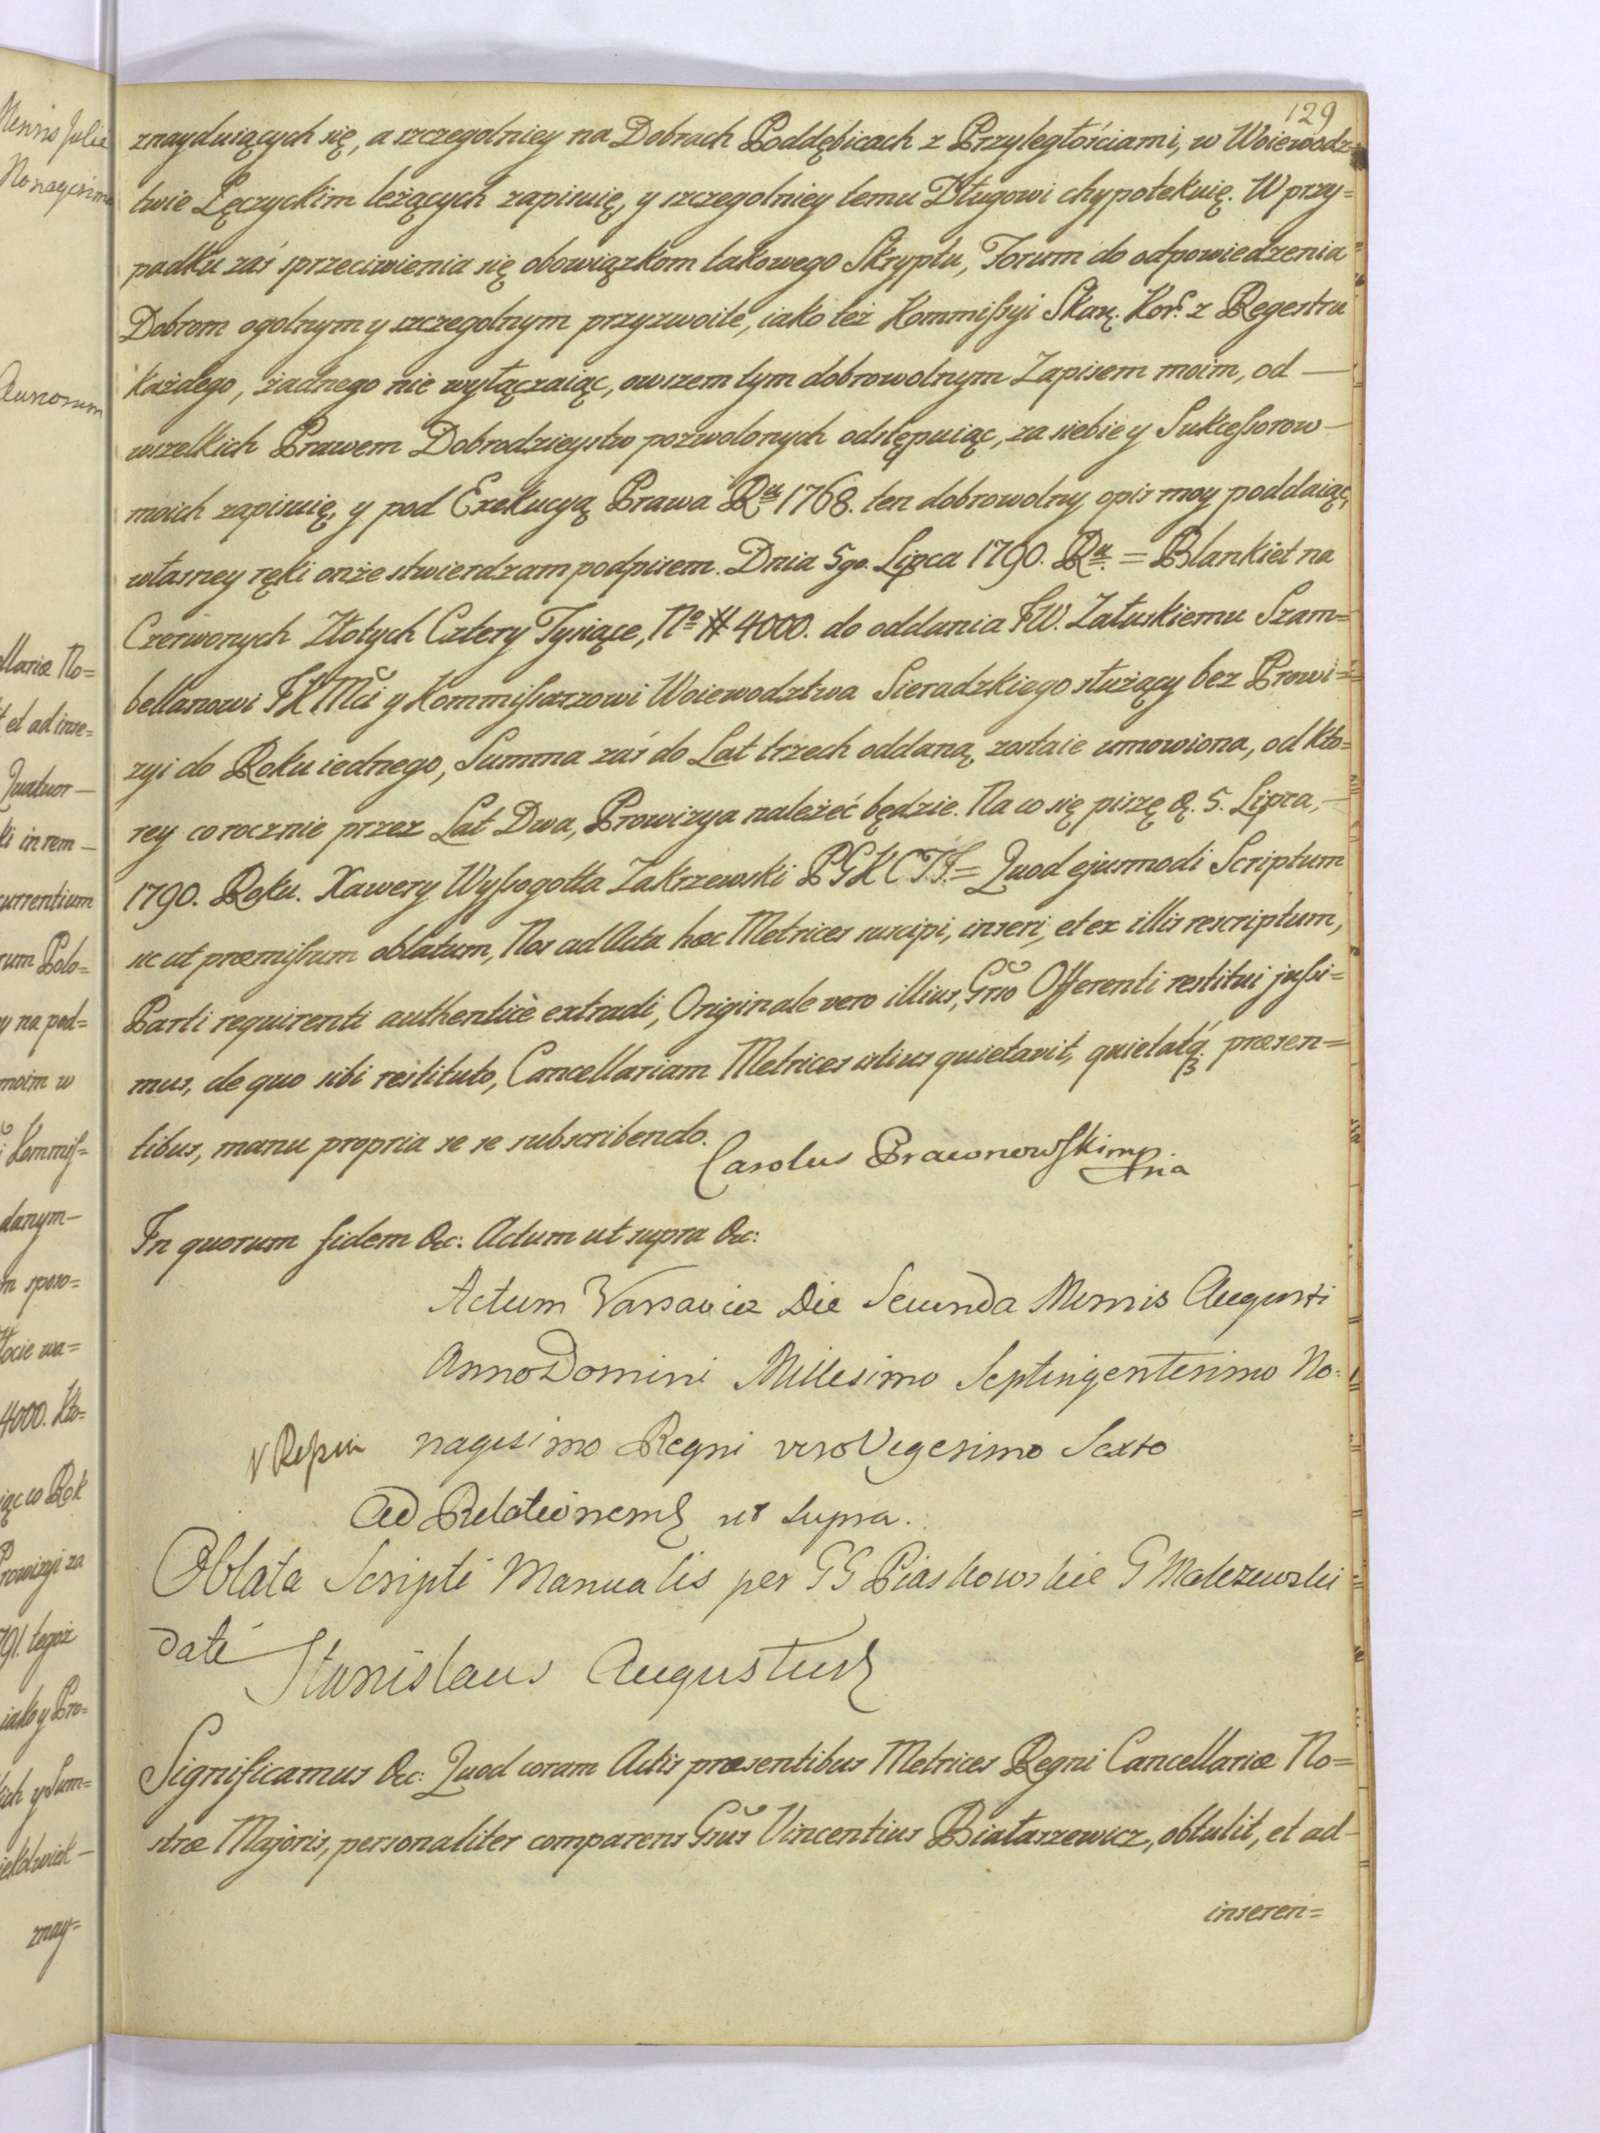 129
znayduiących się, a szczegolniey na Dobrach Poddębicach z Przyległościami, w Woiewodz-
twie Łęczyckim leżących zapisuię, y szczegolniey temu Długowi chypotekuię. W przy=
padku zaś sprzeciwienia się obowiązkom takowego Skryptu, Forum do odpowiedzenia
Dobrom ogolnym y szczegolnym przyzwoite, iako też Kommissyi Skar. Kor. z Regestru
każdego, żadnego nie wyłączaiąc, owszem tym dobrowolnym Zapisem moim, od —
wszelkich Prawem Dobrodzieystw pozwolonych odstępuiąc, za siebie y Sukcessorow —
moich zapisuię, y pod Exekucyą Prawa Ru 1768. ten dobrowolny opis moy poddaiąc,
własney ręki onże stwierdzam podpisem. Dnia 5go. Lipca 1790. Ru. = Blankiet na
Czerwonych Złotych Cztery Tysiące, No # 4000. do oddania JW. Załuskiemu Szam=
bellanowi JKMci y Kommissarzowi Woiewodztwa Sieradzkiego służący bez Prowi=
zyi do Roku iednego, Summa zaś do Lat trzech oddaną zostaie umowiona, od kto=
rey corocznie przez Lat Dwa, Prowizya należeć będzie. Na co się piszę d. 5. Lipca, —
1790. Roku. Xawery Wyssogotta Zakrzewski PGKCJJ. = Quod ejusmodi Scriptum
sic ut præmissum oblatum, Nos ad Acta hæc Metrices suscipi, inseri, et ex illis rescriptum,
Parti requirenti authenticè extradi, Originale vero illius, Gnso Offerenti restitui jussi=
mus, de quo sibi restituto, Cancellariam Metrices istius quietavit, quietatq præsen=
tibus, manu propria se se subscribendo.
Carolus Prawnowski mp
In quorum fidem &c: Actum ut supra &c:
Actum Varsaviæ Die Secunda Mensis Augusti
Anno Domini Millesimo Septingentesimo No-
nagesimo Regni vero Vigesimo Sexto
Ad Relationem ut supra.
Oblata Scripti Manualis per GG Piaskowskie G Malczewski
dati
Stanislaus Augustus
Significamus &c: Quod coram Actis præsentibus Metrices Regni Cancellariæ No=
stræ Majoris, personaliter comparens Gnsus Vincentius Białaszewicz, obtulit, et ad-
inseren=